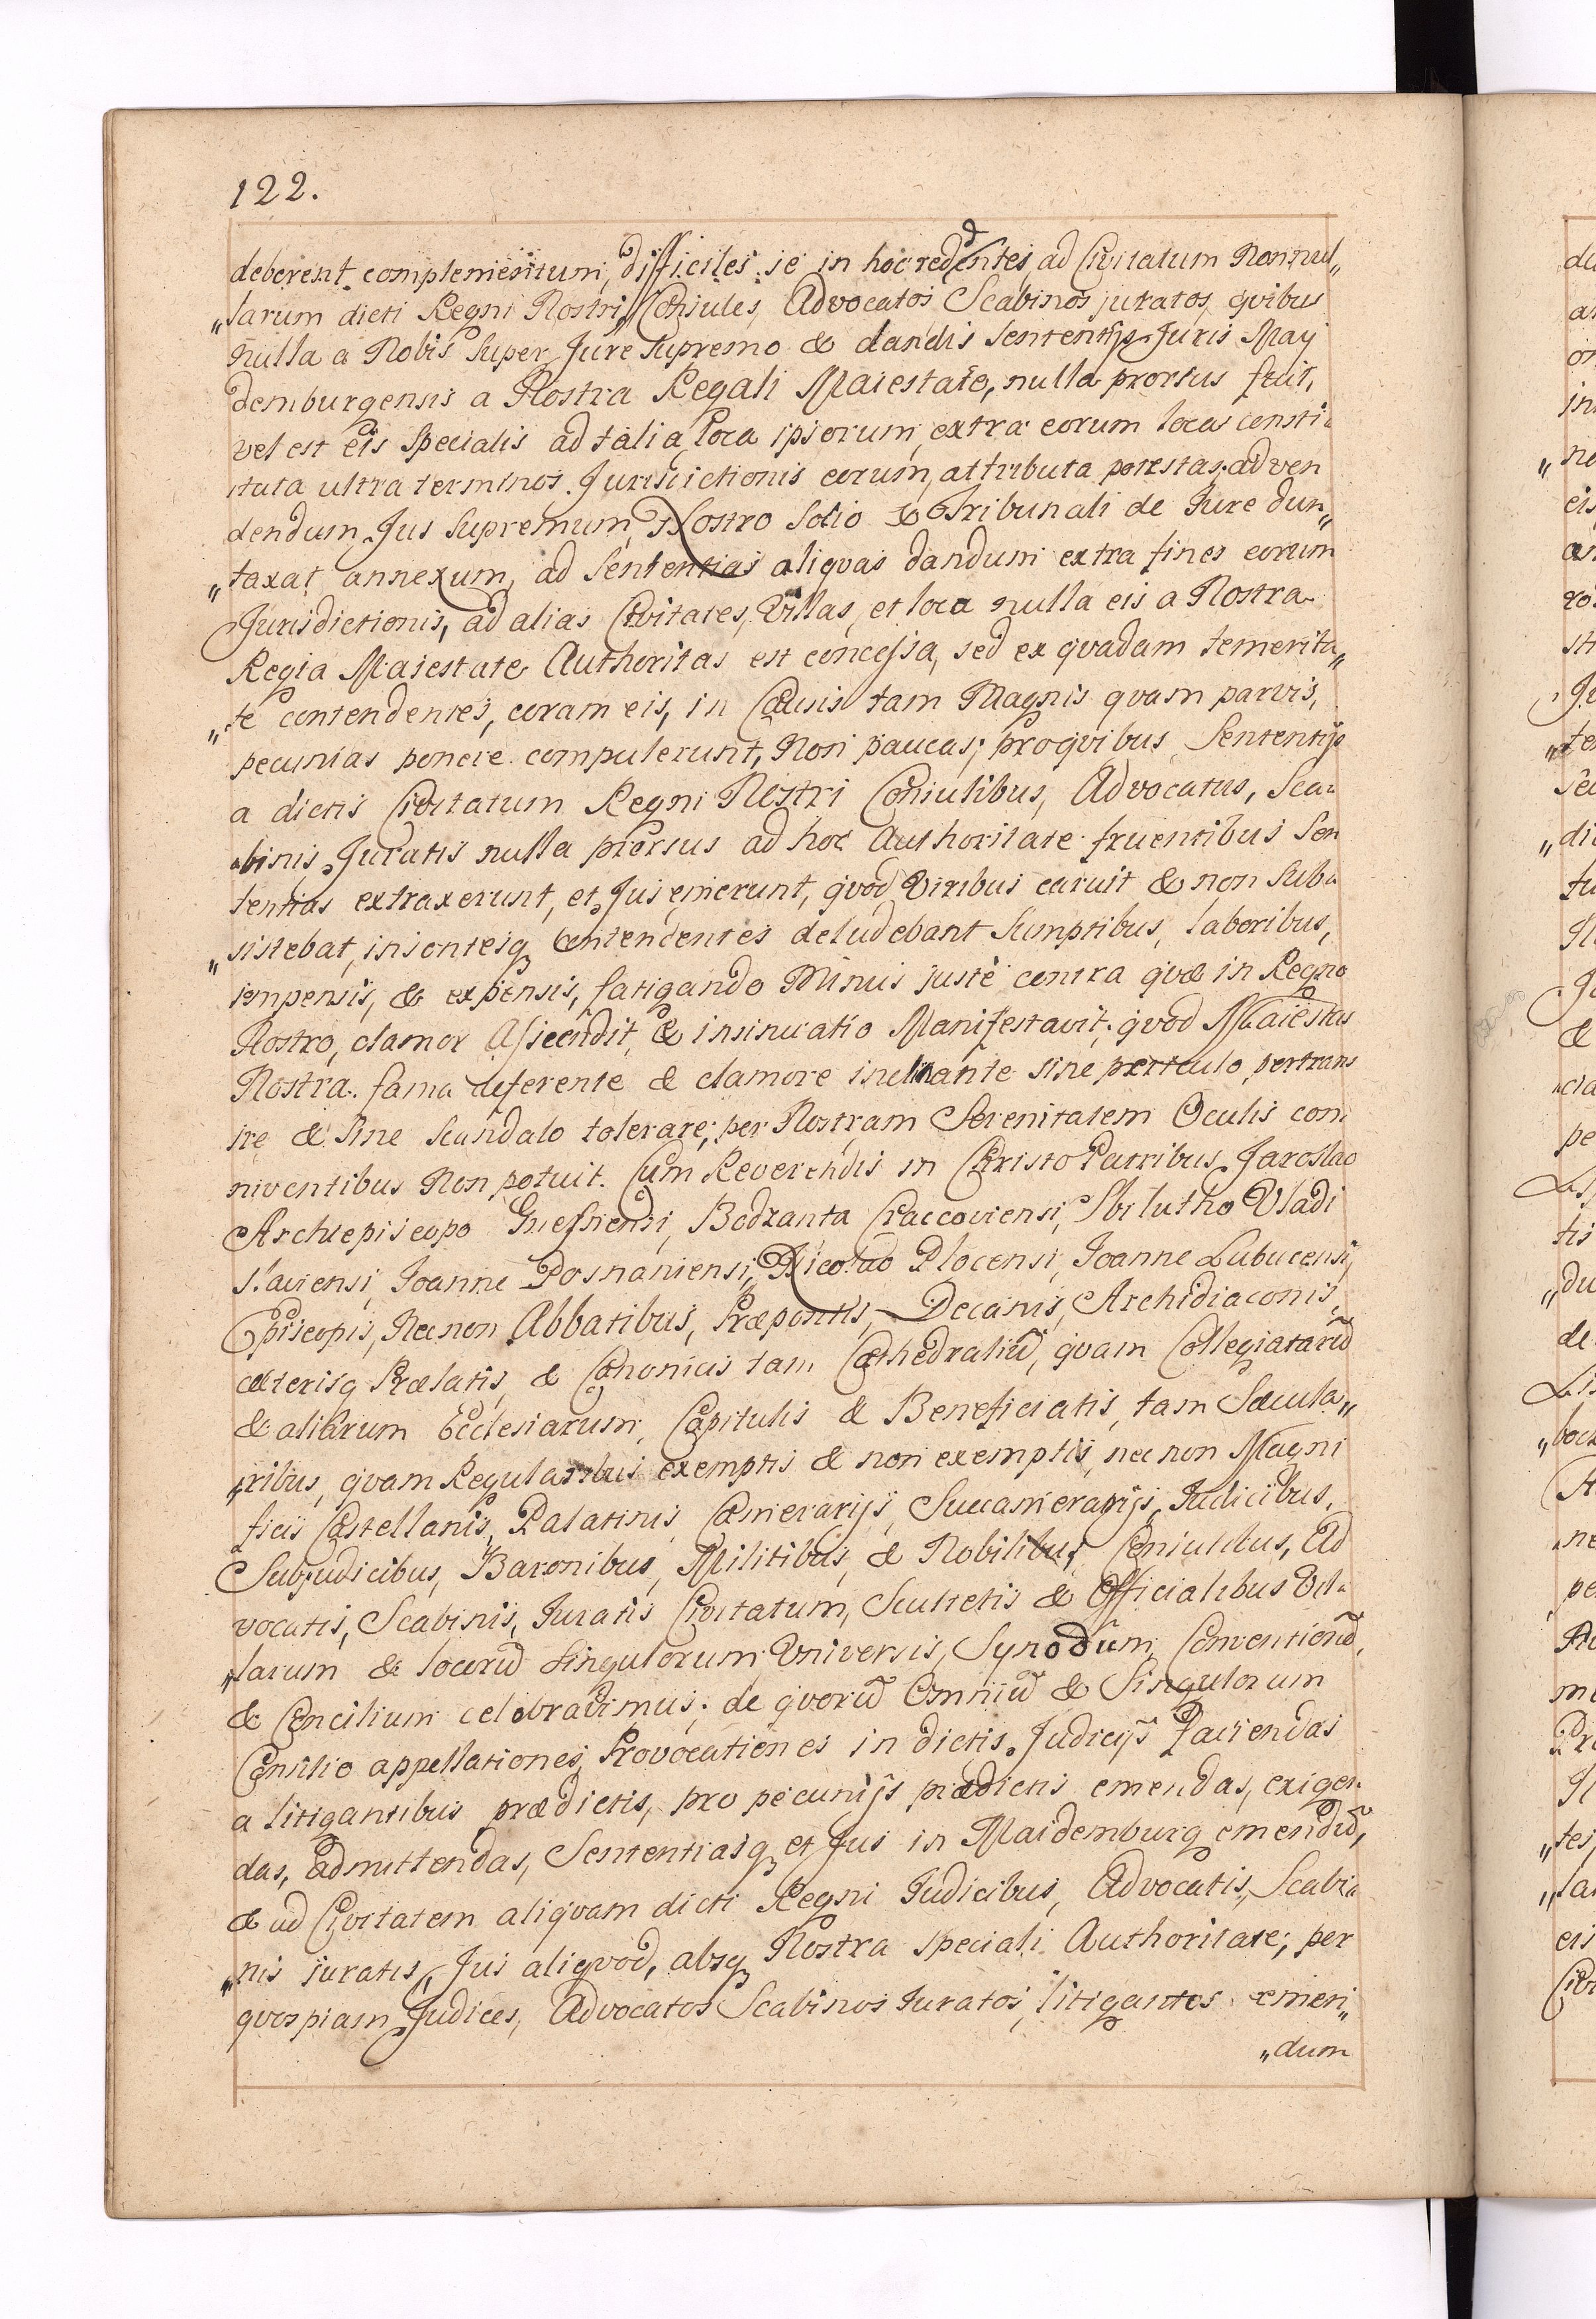 122.
deberent complementum, difficiles se in hoc reddentes, ad Civitatum Nonnul„
„larum dicti Regni Nostri, Consules, Advocatos Scabinos juratos, qvibus
nulla a Nobis Super Jure supremo & dandis Sententijs Juris May
demburgensis a Nostra Regali Maiestate, nulla prorsus fuit,
vel est eis Specialis ad talia loca ipsorum, extra eorum loca consti„
tuta ultra terminos Jurisdictionis eorum, attributa potestas, ad ven
dendum Jus Supremum, Nostro Solio & Tribunali de Iure dun„
„taxat annexum, ad Sententias aliqvas dandum extra fines eorum
Jurisdictionis, ad alias Civitates, Villas, et loca nulla eis a Nostra
Regia Maiestate Authoritas est concessa, sed ex qvadam temerita„
„te contendentes, coram eis, in Causis tam Magnis qvam parvis,
pecunias ponere compulerunt, Non paucas; pro qvibus Sententijs
a dictis Civitatum Regni Nostri Consulibus, Advocatis, Sca„
„binis Juratis nulla prorsus ad hoc Authoritate fruentibus Sen
tentias extraxerunt, et Jus emerunt, qvod Viribus caruit & non Sub„
„sistebat, insontesq contendentes deludebant Sumptibus, laboribus,
impensis, & expensis, fatigando Minus juste contra qvæ in Regno
Nostro, clamor Ascendit, & insinuatio Manifestavit, qvod Maiestas
Nostra fama deferente & clamore inclinante sine periculo pertrans
ire & sine Scandalo tolerare, per Nostram Serenitatem Oculis con
niventibus Non potuit. Cum Reverendis in Christo Patribus Jaroslao
Archiepiscopo Gnesnensi, Bodzanta Craccoviensi, Sbilutho Vladi
slaviensi, Joanne Posnaniensi, Nicolao Plocensi, Joanne Lubucensi,
Episcopis, Necnon Abbatibus, Præpositis, Decanis, Archidiaconis,
cæterisq Prælatis, & Canonicis tam Cathedraliũ, qvam Collegiatarũ
& aliarum Ecclesiarum, Capitulis & Beneficiatis, tam Sæcula„
„ribus, qvam Regularibus exemptis & non exemptis, nec non Magni
ficis Castellanis, Palatinis, Camerarijs, Succamerarijs, Iudicibus,
Subjudicibus, Baronibus, Militibus, & Nobilibus, Consulibus, Ad
vocatis, Scabinis, Iuratis Civitatum, Scultetis & Officialibus Vil„
„larum & locorũ Singulorum Vniversis, Synodum, Conventionẽ,
& Concilium celebravimus; de qvorũ Omniũ & Singulorum
Consilio appellationes, Provocationes in dictis Judicijs Faciendas
a litigantibus prædictis, pro pecunijs prædictis emendas, exigen
das, admittendas, Sententiasq et Jus in Maidemburg emendũ,
& ad Civitatem aliqvam dicti Regni Iudicibus, Advocatis, Scabi„
„nis juratis, Jus aliqvod, absq Nostra Speciali Authoritate, per
qvospiam Judices, Advocatos Scabinos Iuratos, litigantes emen„
„dum